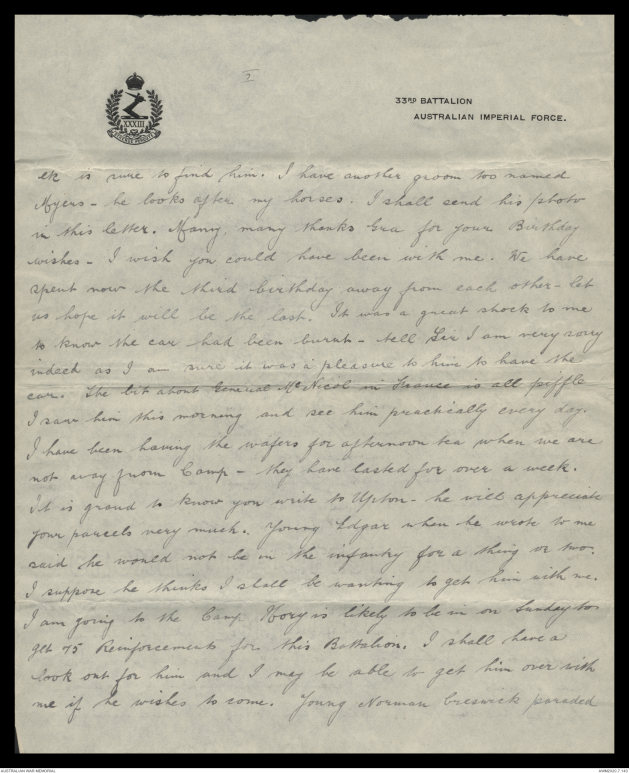 2
33RD BATTALION
AUSTRALIAN IMPERIAL FORCE.
XXXIII
etc is sure to find him. I have another groom too named
Myers - he looks after my horses. I shall send his photo
in this letter. Many, many thanks Gra for your Birthday
wishes - I wish you could have been with me. We have
spent now the third birthday away from each other - let
us hope it will be the last. It was a great shock to me
to know the car had been burnt - tell Sir I am very sorry
indeed as I am sure it was a pleasure to him to have the
car. The bit about General McNicol in France is all piffle
I saw him this morning and see him practically every day.
I have been having the wafers for afternoon tea when we are
not away from Camp - they have lasted for over a week.
It is grand to know you write to Upton - he will appreciate
your parcels very much. Young Edgar when he wrote to me
said he would not be in the infantry for a thing or two.
I suppose he thinks I shall be wanting to get him with me.
I am going to the Camp is likely to be in on Sunday to
get 75 Reinforcements for this Battalion. I shall have a
look out for him and I may be able to get him over with
me if he wishes to come. Young Norman Creswick paraded
AUSTRALIAN WAR MEMORIAL